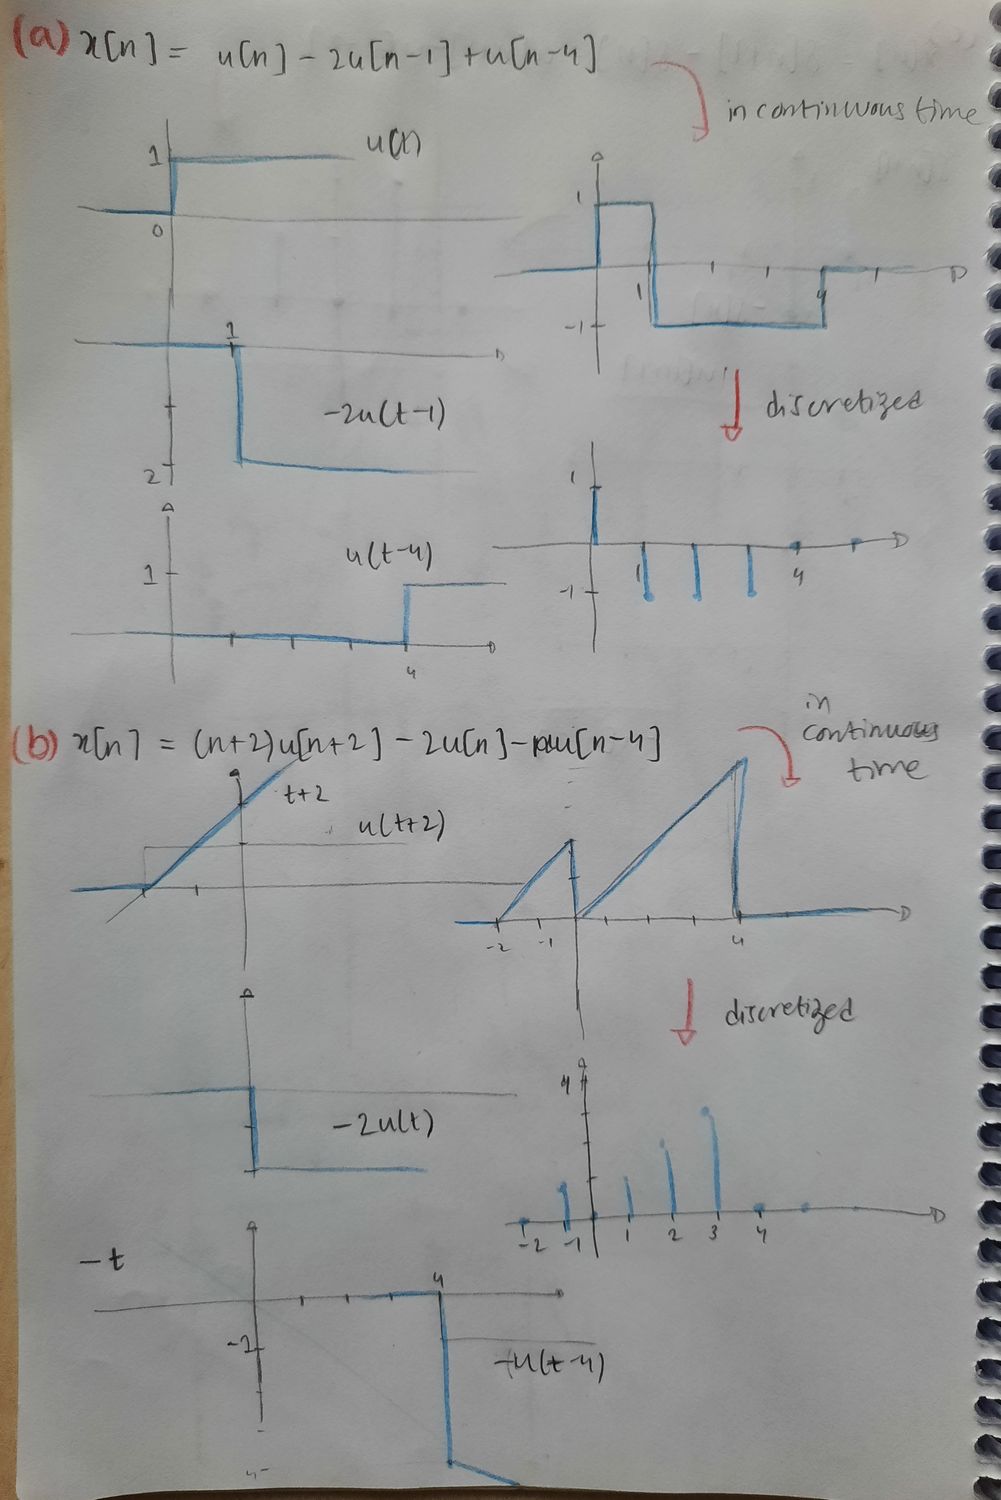 (a) x[n] = u[n] - 2u[n-1] + u[n-4]
in continuous time
1
u(t)
0
1
1
4
-1
1
-2u(t-1)
2
discretized
1
1
4
-1
u(t-4)
1
4
(b) x[n] = (n+2)u[n+2] - 2u[n] - nu[n-4]
in
continuous
time
t+2
u(t+2)
-2
-1
4
discretized
-2u(t)
4
-2
-1
1
2
3
4
-t
4
-u(t-4)